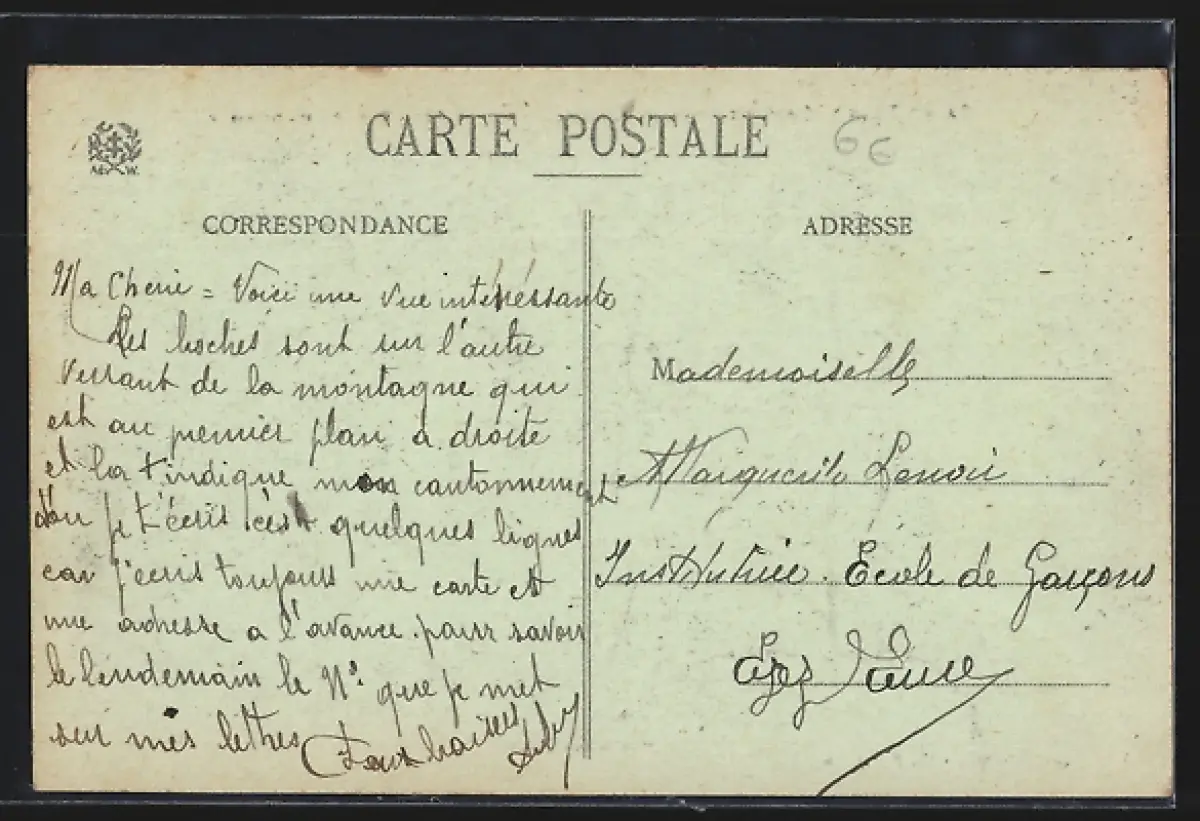 CARTE POSTALE
6 6
CORRESPONDANCE
Ma Cherie = Voici une vue intéréssante
Les boches sont sur l'autre
versant de la montagne qui
est au premier plan a droite
et la + indique mon cantonnement
d'ou je t'écris ces quelques lignes
car j'écris toujours une carte et
une adresse a l'avance. pour savoir
le lendemain le N° que je met
sur mes lettres
Doux baisers
ADRESSE
Mademoiselle
Marguerite Lenoir
Institutrice. École de Garçons